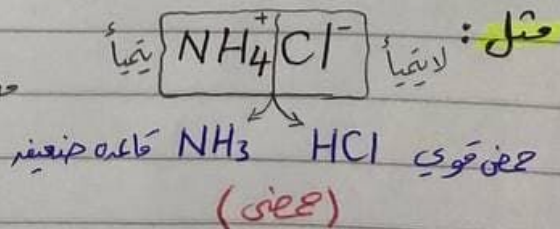 مثل :
لا يتميأ NH₄⁺ Cl⁻ يتميأ
حمض قوي HCl NH₃ قاعده ضعيفه
(حمضي)